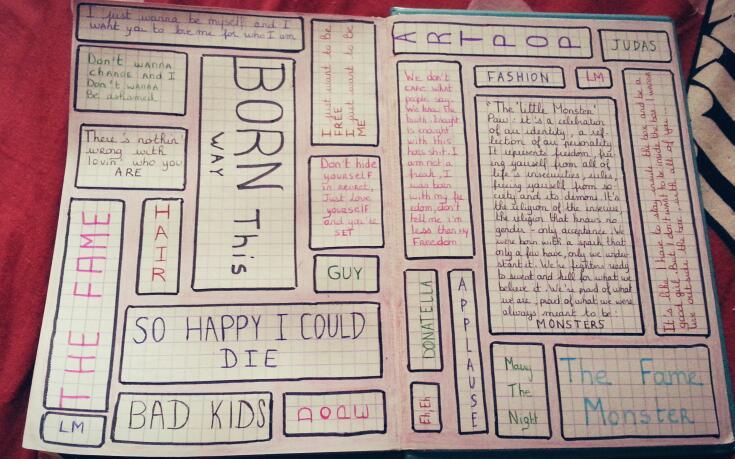 I just wanna be myself and I
want you to love me for who I am
Don't wanna
change and I
Don't wanna
Be ashamed
There's nothin'
wrong with
lovin' who you
ARE
BORN This
WAY
I just want to Be
FREE
I just want to be
ME
Don't hide
yourself
in regret,
Just love
yourself
and you're
SET
THE FAME
HAIR
GUY
SO HAPPY I COULD
DIE
LM
BAD KIDS
DOPE
ARTPOP
JUDAS
We don't
care what
people say,
We know the
truth. Enough
is enough
with this
horse shit. I
am not a
freak, I
was born
with my free
dom, don't
tell me I'm
less than my
Freedom
FASHION
LM
"The 'Little Monster'
Paw: it's a celebration
of our identity, a ref-
lection of our personality.
It represents freedom, free-
ing yourself from all of
life's insecurities, rules,
freeing yourself from so-
ciety and its demons. It's
the religion of the insecure,
the religion that knows no
gender - only acceptance. We
were born with a spark that
only a few have, only we under-
stand it. We're fighters ready
to sweat and kill for what we
believe it. We're proud of what
we are, proud of what we were
always meant to be:
MONSTERS
It's like I have to stay inside the box and be a
good girl. But I don't want to be inside the box, I wanna
live outside the box with all of you
DONATELLA
APPLAUSE
Eh, Eh
Mary
The
Night
The Fame
Monster